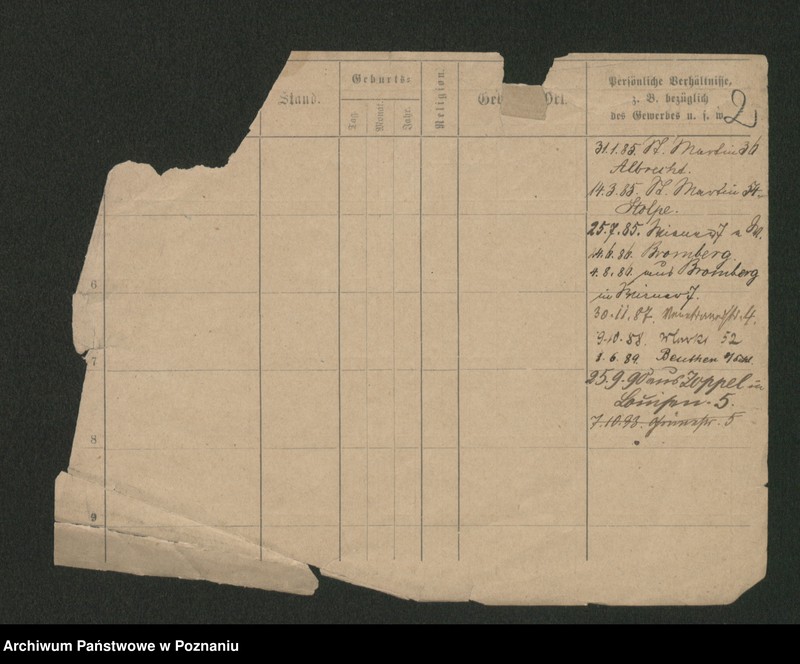 Stand.
Geburts=
Tag.
Monat.
Jahr.
Religion.
Persönliche Verhältnisse,
z. B. bezüglich
des Gewerbes u. s. w.
2
31.1.85. St. Martin 36
Albrecht.
14.3.85. St. Martin 34
Stolpe.
25.7.85.
14.6.86. Bromberg.
4.8.86. aus Bromberg
in
30.11.87.
9.10.88. 52
1.6.89. Beuthen
25.9.90 aus Zoppel in
Louisen. 5.
7.10.93. Grünstr. 5
6
7
8
9
Archiwum Państwowe w Poznaniu